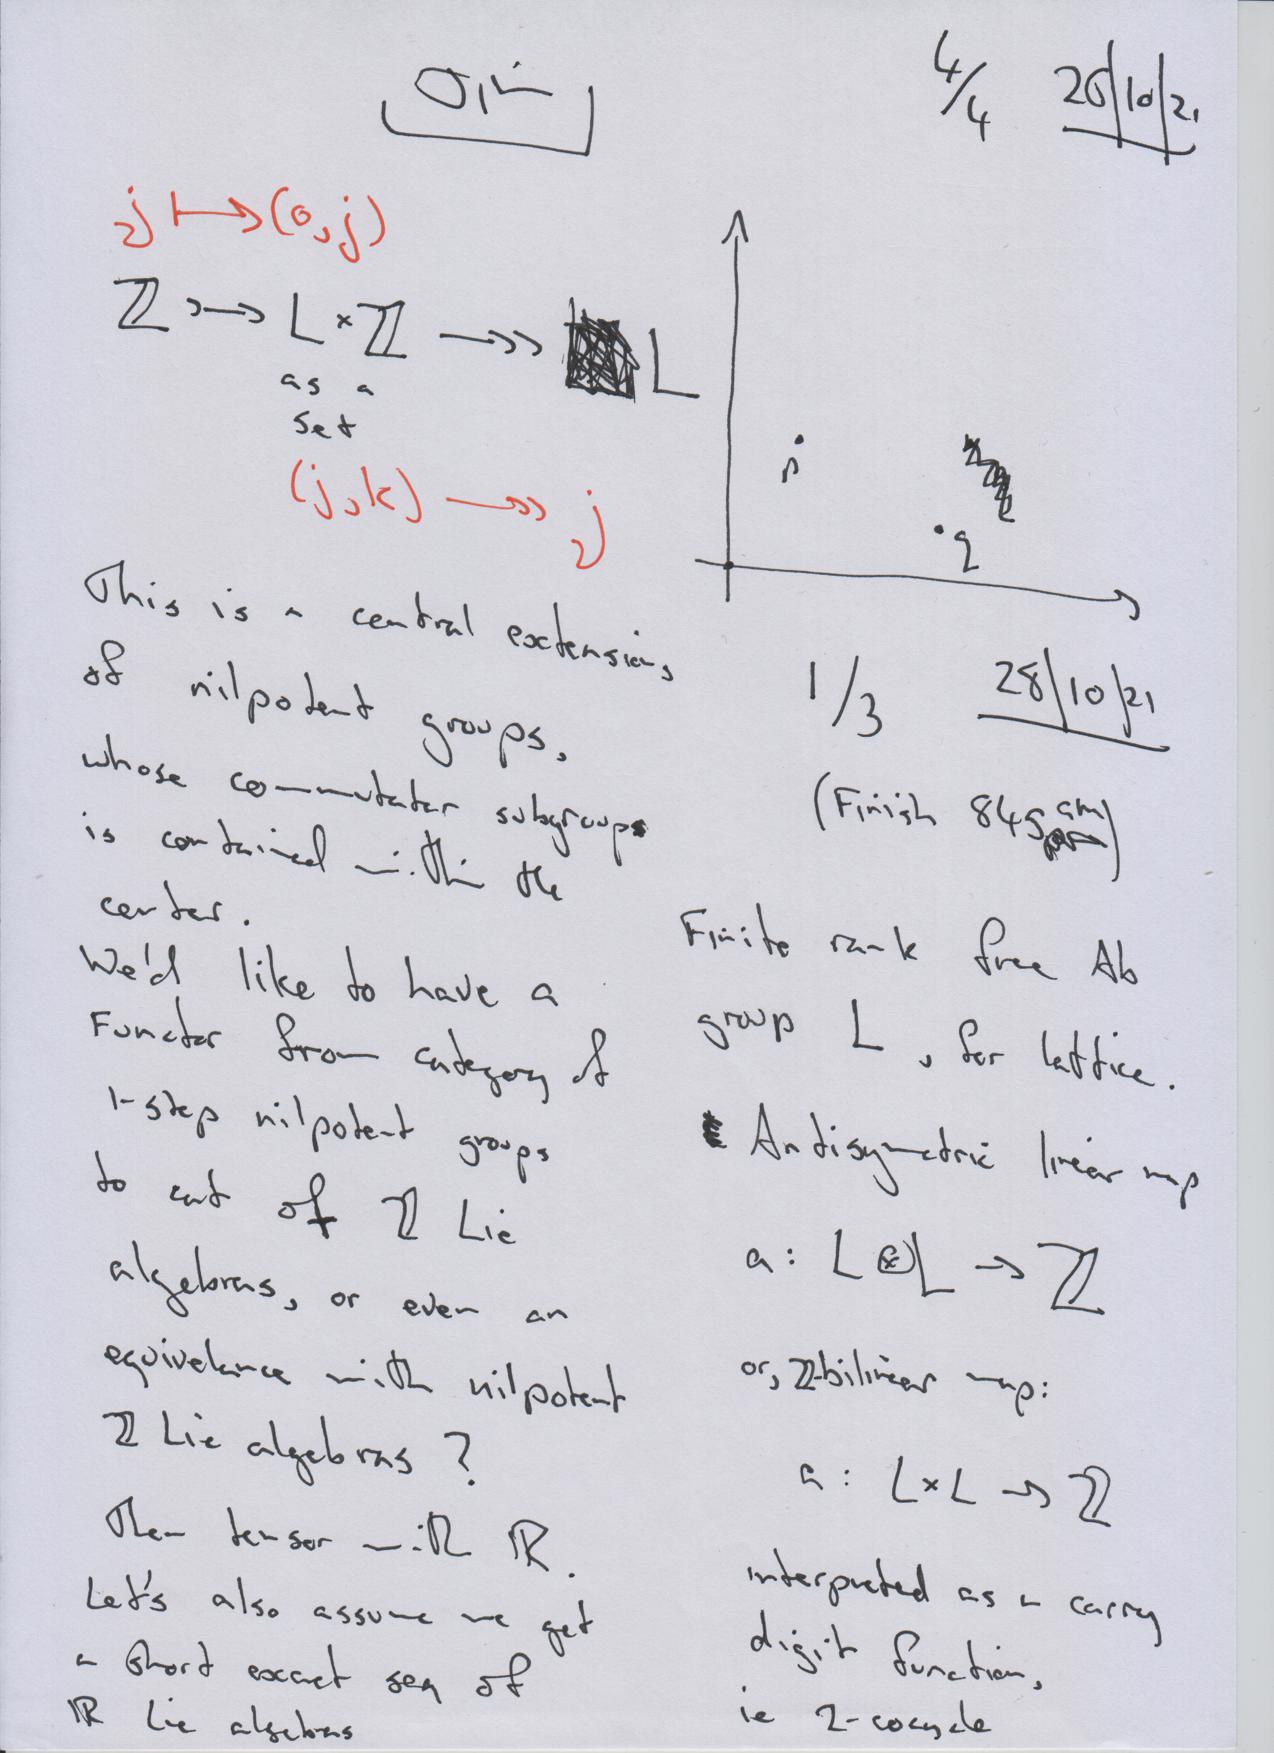 4/4 26/10/21
j ↦ (0, j)
ℤ ↣ L × ℤ ↠ L
as a
set
(j, k) ↠ j
p
q
This is a central extension,
of nilpotent groups,
whose commutator subgroups
is contained within the
center.
We'd like to have a
Functor from category of
1-step nilpotent groups
to cat of ℤ Lie
algebras, or even an
equivelance with nilpotent
ℤ Lie algebras?
Then tensor with ℝ.
Let's also assume we get
a short exact seq of
ℝ Lie algebras
1/3 28/10/21
(Finish 845am)
Finite rank free Ab
group L, for lattice.
Antisymetric linear map
a: L ⊗ L → ℤ
or, ℤ-bilinear map:
a: L × L → ℤ
interpreted as a carry
digit function,
ie 2-cocycle